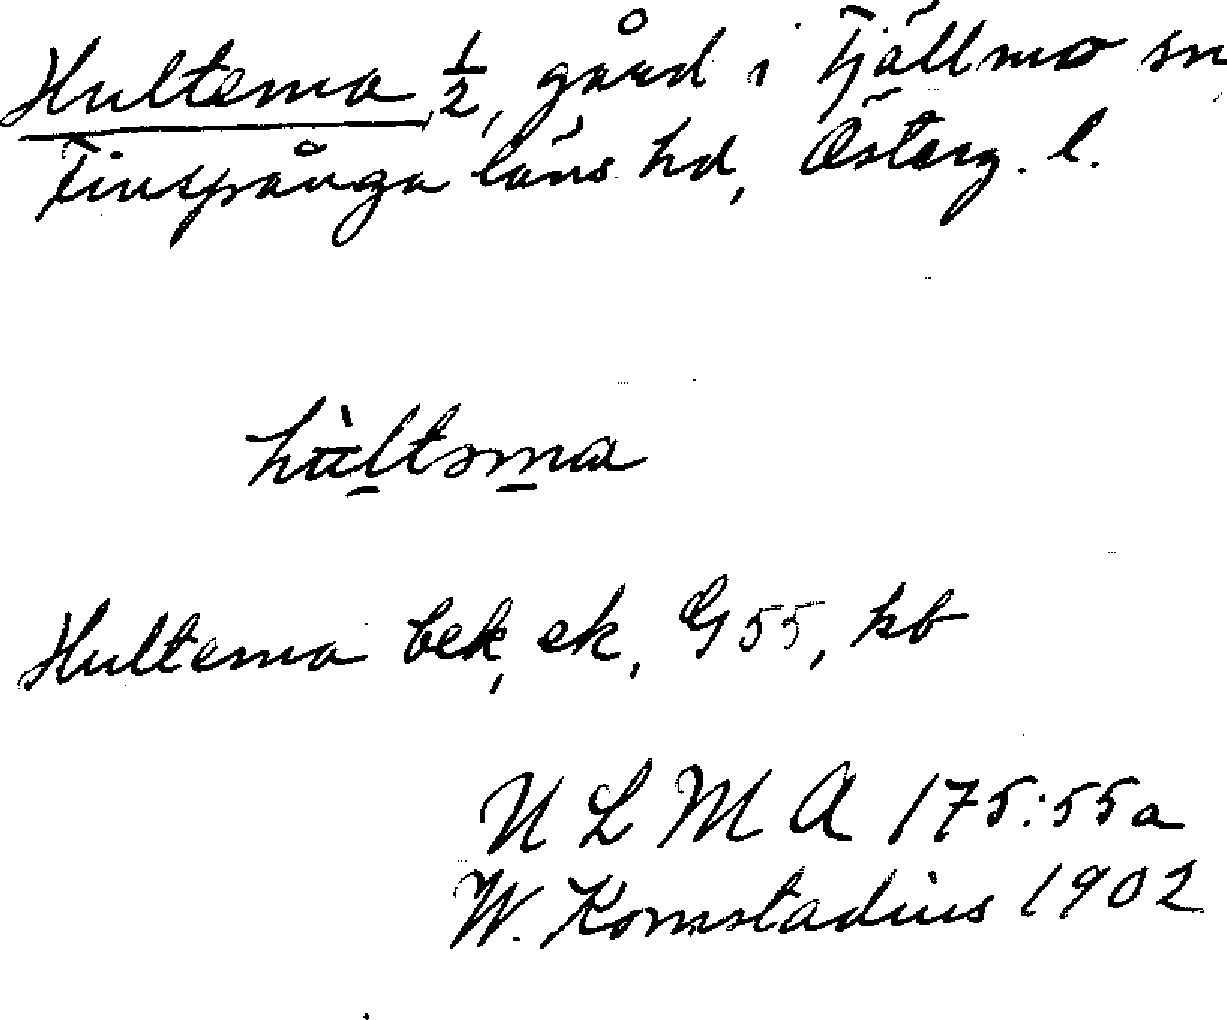 Hultema 1/2, gård i Tjällmo sn
Finspånga läns hd, Österg. l.
hùltəma
Hultema bek, ek, G 55, kb
ULMA 175:55a
W. Komstadius 1902